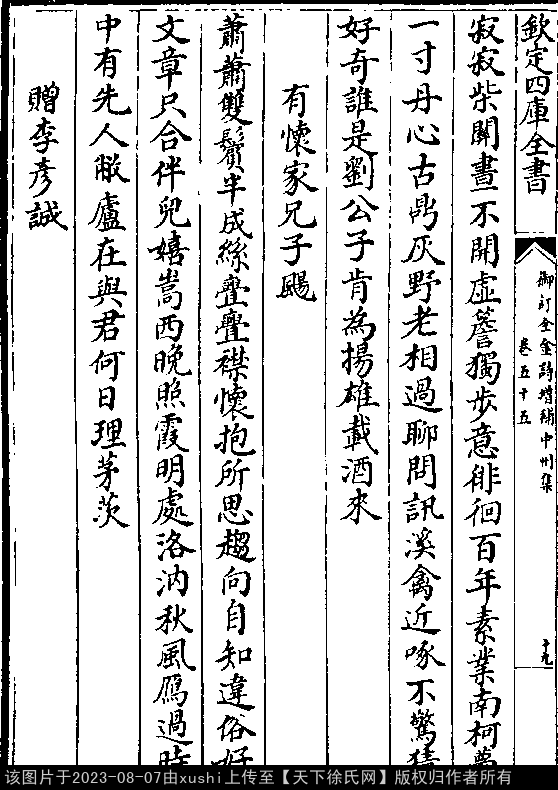 欽定四庫全書
御訂全金詩增補中州集
卷五十五
十九
寂寂柴關晝不開虛簷獨步意徘徊百年素業南柯夢
一寸丹心古鼎灰野老相過聊問訊溪禽近啄不驚猜
好奇誰是劉公子肯為揚雄載酒來
有懷家兄子颺
蕭蕭雙鬢半成絲疊疊襟懷抱所思趨向自知違俗好
文章只合伴兒嬉嵩西晚照霞明處洛汭秋風鴈過時
中有先人敝廬在與君何日理茅茨
贈李彥誠
该图片于2023-08-07由xushi上传至【天下徐氏网】版权归作者所有